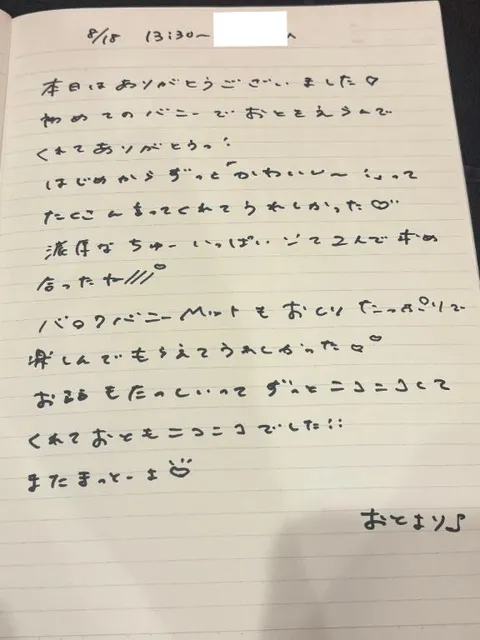 8/18 13:30～ へ
本日はありがとうございました♡
初めてのバニーでおとをえらんで
くれてありがとうっ!
はじめからずっと「かわいい～!」って
たくさん言ってくれてうれしかった♡
濃厚なちゅーいっぱいして2人で求め
合ったね///♡
バロクバニーMットもおくりたっぷりで
楽しんでもらえてうれしかった♡♡
おふろもたのしいってずっとニコニコして
くれておともニコニコでした!!
またまっとーよ♡
おとより♪